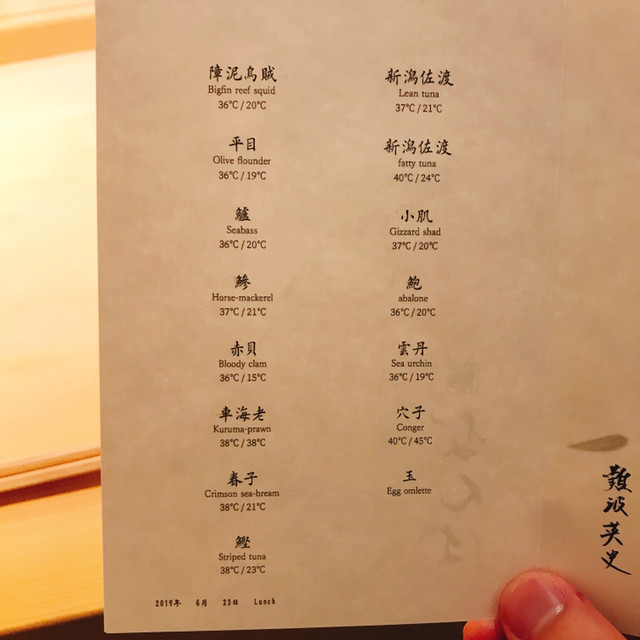 障泥烏賊
Bigfin reef squid
36℃ / 20℃
平目
Olive flounder
36℃ / 19℃
鱸
Seabass
36℃ / 20℃
鰺
Horse-mackerel
37℃ / 21℃
赤貝
Bloody clam
36℃ / 15℃
車海老
Kuruma-prawn
38℃ / 38℃
春子
Crimson sea-bream
38℃ / 21℃
鰹
Striped tuna
38℃ / 23℃
2019年 6月 23日 Lunch
新潟佐渡
Lean tuna
37℃ / 21℃
新潟佐渡
fatty tuna
40℃ / 24℃
小肌
Gizzard shad
37℃ / 20℃
鮑
abalone
36℃ / 20℃
雲丹
Sea urchin
36℃ / 19℃
穴子
Conger
40℃ / 45℃
玉
Egg omlette
難波英史